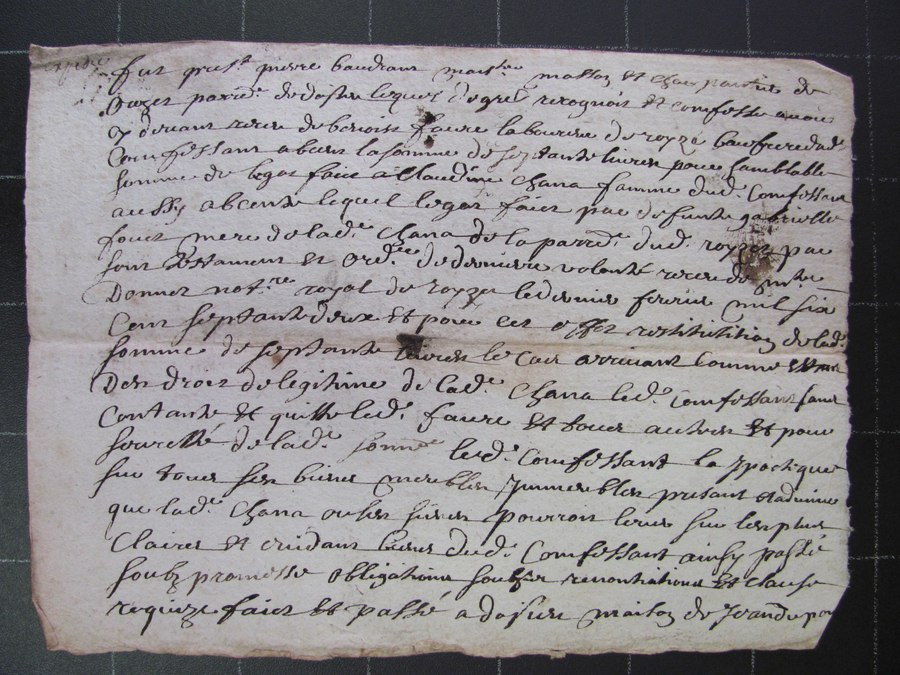 fut pnt. pierre baudrant maistre masson et charpantier de
parrd. de dosieu lequel de gré recognoit et comfesse avoir
cy devant receu de benoist faure laboureur de royzé
Comfessant absent la somme de septante livres pour semblable
somme de legat faict a Claudine Chana famme dud. Comfessant
aussy absente lequel legat faict par defunte gabrielle
mere de lad. Chana de la parrd. dud. par
sont testament et ord. de derniere volonté receu de me
Donnet notre royal de le dernier febrier mil six
Cent septante deux et pour cet effet restitution de lad.
somme de septante livres le cas arrivant comme
Des droit de legitime de lad. Chana led. Comfessant sans
Contante et quitte led. faure et tous autres et pour
seureté de lad. somme led. Comfessant la ypoteque
sur tous ses biens meubles ymmeubles presant et advenir
que lad. Chana ou ses hiers pourront leur sur les plus
Claires et biens dud. Comfessant ainsy passé
soubz promesse obligations renontiations et clause
requize faict et passé a dosieu maison de Jean